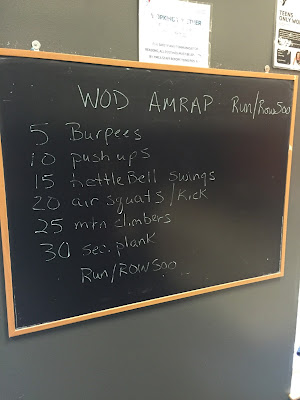 TEENS
ONLY WO
WOD AMRAP Run/Row500
5 Burpees
10 push ups
15 kettleBell swings
20 air squats/Kick
25 mtn climbers
30 sec. plank
Run/ROW500